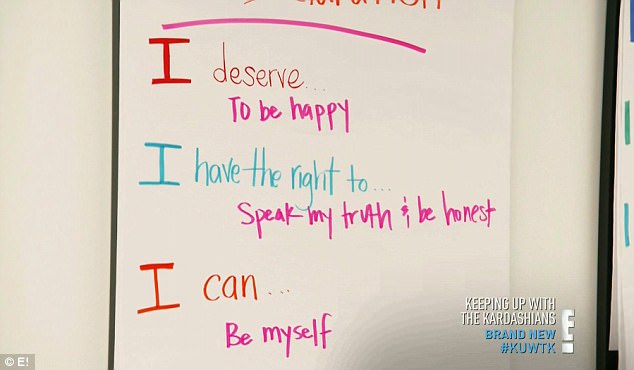 I deserve...
To be happy
I have the right to...
Speak my truth & be honest
I can...
Be myself
KEEPING UP WITH
THE KARDASHIANS
BRAND NEW
#KUWTK
E!
© E!